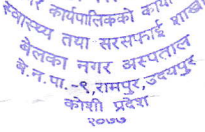 र कार्यपालिकको कार्या
स्वास्थ्य तथा सरसफाई शाखा
बेलका नगर अस्पताल
बे.न.पा.-९,रामपुर,उदयपुर
कोशी प्रदेश
२०७७